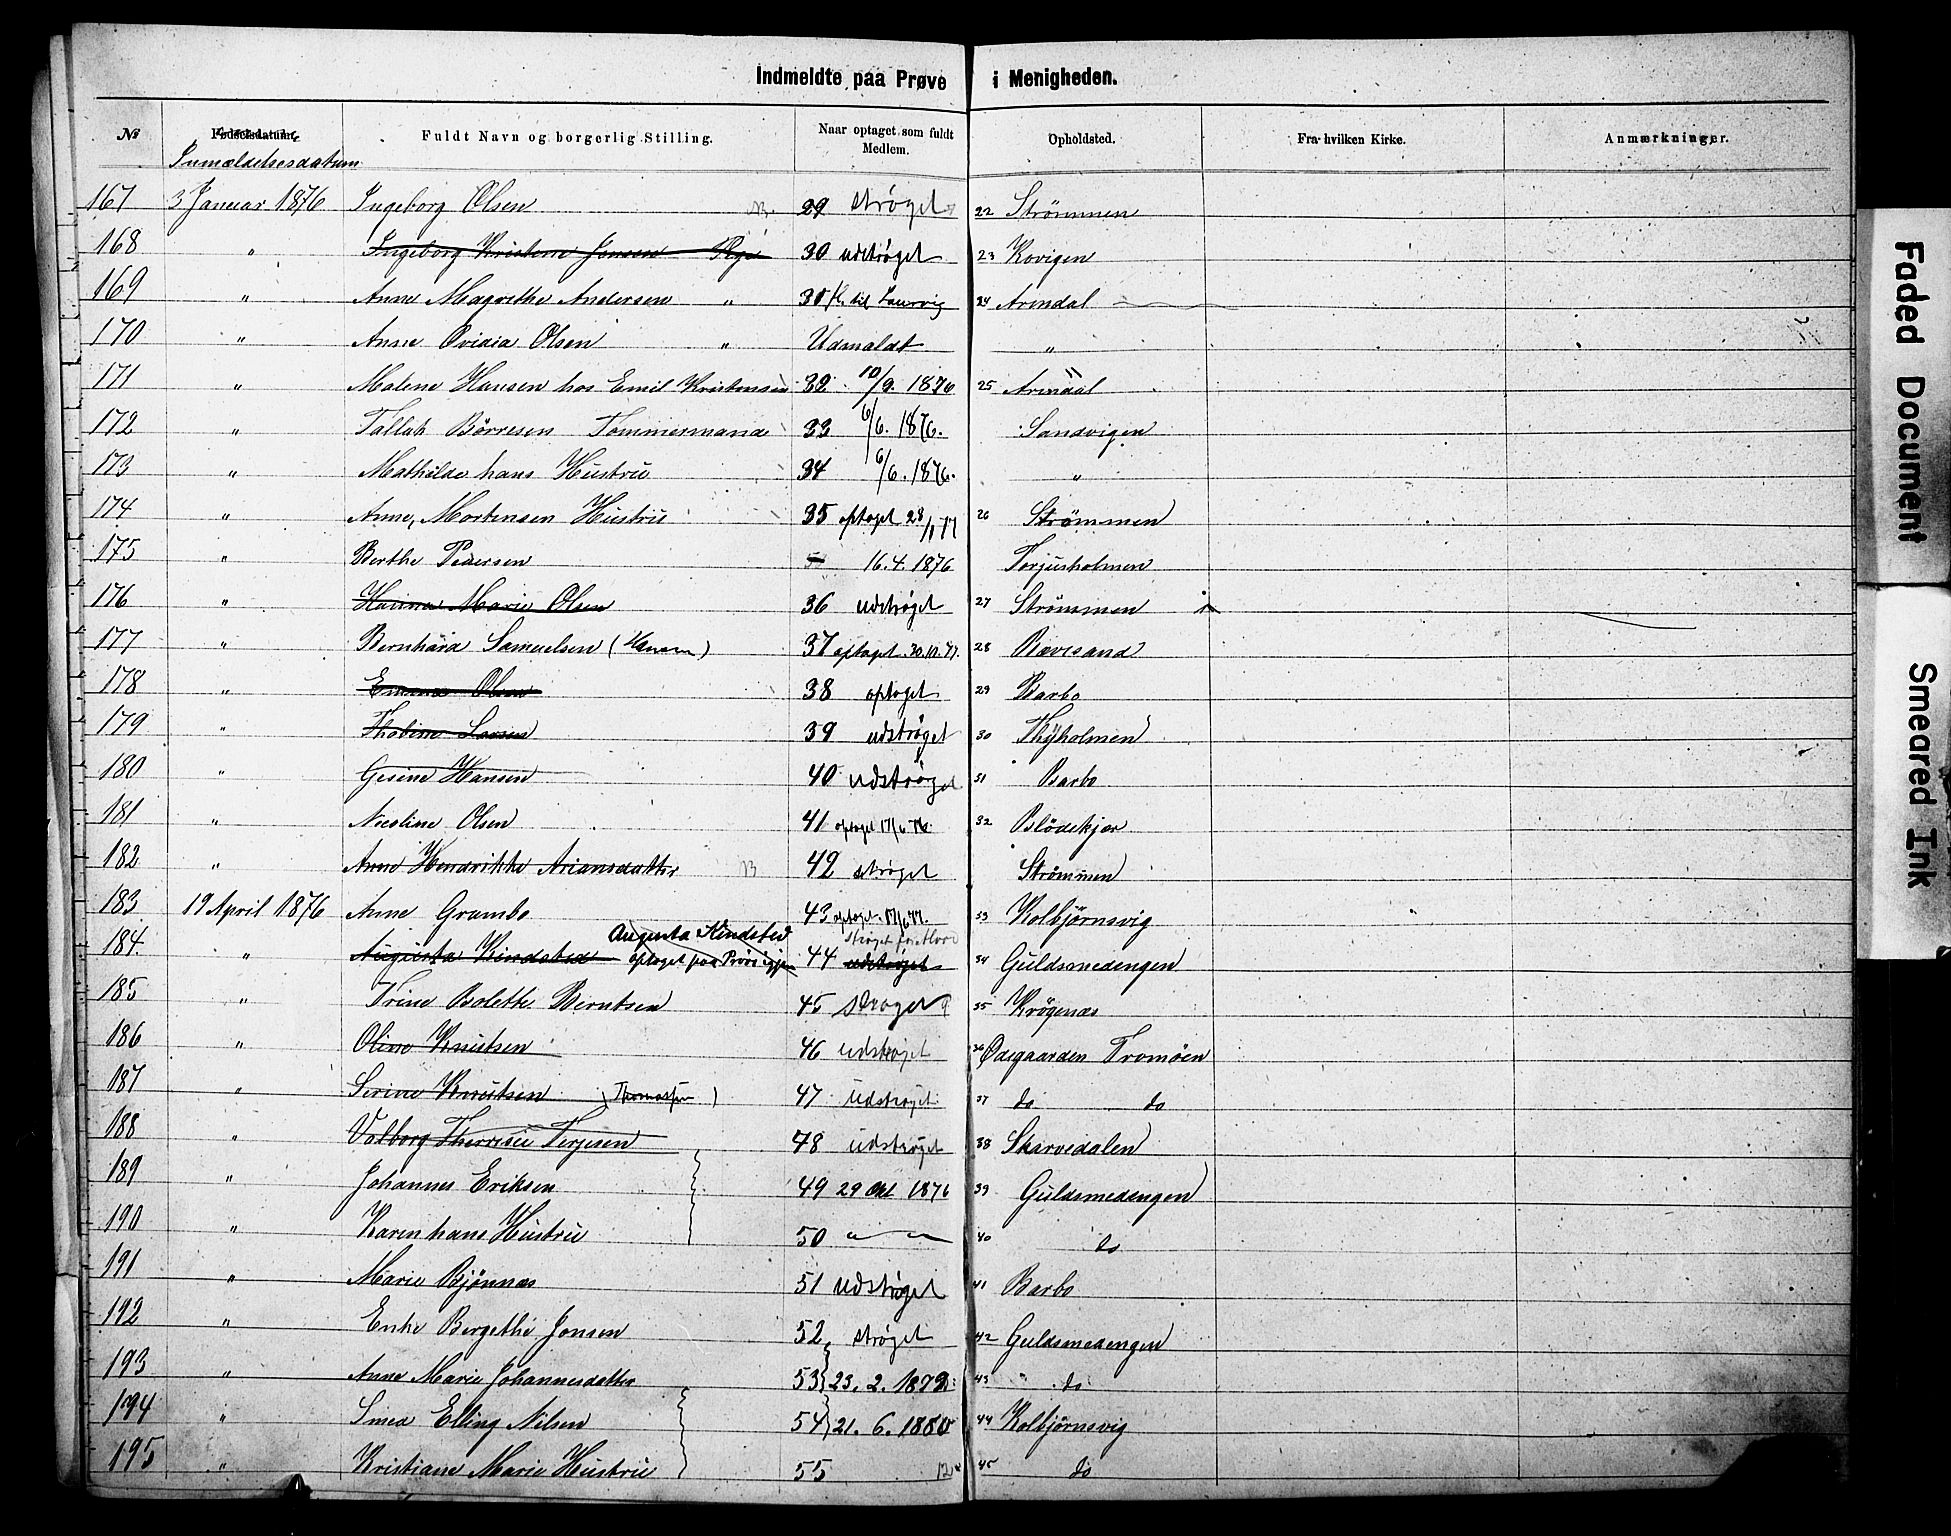 Indmeldte paa Prøve i Menigheden.
№ Fødselsdatum. Fuldt Navn og borgerlig Stilling. Naar optaget som fuldt Medlem. Opholdsted. Fra hvilken Kirke. Anmærkninger.
Inmældelsesdatum
167 3 Januar 1876 Ingeborg Olsen 29 strøget 22 Strömmen
168 " Ingeborg Kristene Jensen Rye 30 udstrøget 23 Kovigen
169 " Anne Magrethe Andersen " 31 fl. til Laurvig 24 Arendal
170 " Anne Ovidia Olsen " Udmaldt "
171 " Malene Hansen hos Emil Kristensen 32 10/9. 1876 25 Arendal
172 " Tallak Börresen Tömmermand 33 6/6. 1876. Sandvigen
173 " Mathilde hans Hustru 34 6/6. 1876. "
174 " Anne, Mortensen Hustru 35 optaget 28/1 77 26 Strömmen
175 " Berthe Pedersen 16.4.1876 Torjusholmen
176 " Hanna Marie Olsen 36 udstrøget 27 Strömmen
177 " Bernhard Samuelsen (Hansen) 37 optaget 30.10.77. 28 Revesand
178 " Emma Olsen 38 optaget 29 Barbo
179 " Thobine Larsen 39 udstrøget 30 Thyholmen
180 " Gesine Hansen 40 udstrøget 31 Barbo
181 " Nicoline Olsen 41 optaget 17/6 76. 32 Blödekjær
182 " Anne Hendrikke Ariansdatter B 42 strøget Strömmen
183 19 April 1876 Anne Grambo 43 optaget 17/6 77. 33 Kolbjörnsvig
184. " Augusta Kindsted Augusta Kindsted optaget paa Prøve igjen 44 udstrøget strøget for Hoor 34 Guldsmedengen
185 " Trine Bolette Berntsen 45 strøget 35 Krögenæs
186 " Oline Knutsen 46 udstrøget 36 Ødegaarden Tromöen
187 " Serine Knutsen (Thomassen) 47 udstrøget 37 do do
188 " Valborg Therresie Terjesen 48 udstrøget 38 Skarvedalen
189 " Johannes Eriksen 49 29 Okt 1876 39 Guldsmedengen
190 " Karen hans Hustru 50 " " 40 do
191 " Marie Bjönnæs 51 udstrøget 41 Barbo
192 " Enke Bergethe Jonsen 52 strøget 42 Guldsmedengen
193 " Anne Marie Johannesdatter 53 23. 2. 1879 43 " do
194 " Smed Elling Nilsen 54 21. 6. 1880 44 Kolbjörnsvig
195 " Kristiane Marie Hustru 55 45 do
Faded Document
Smeared Ink